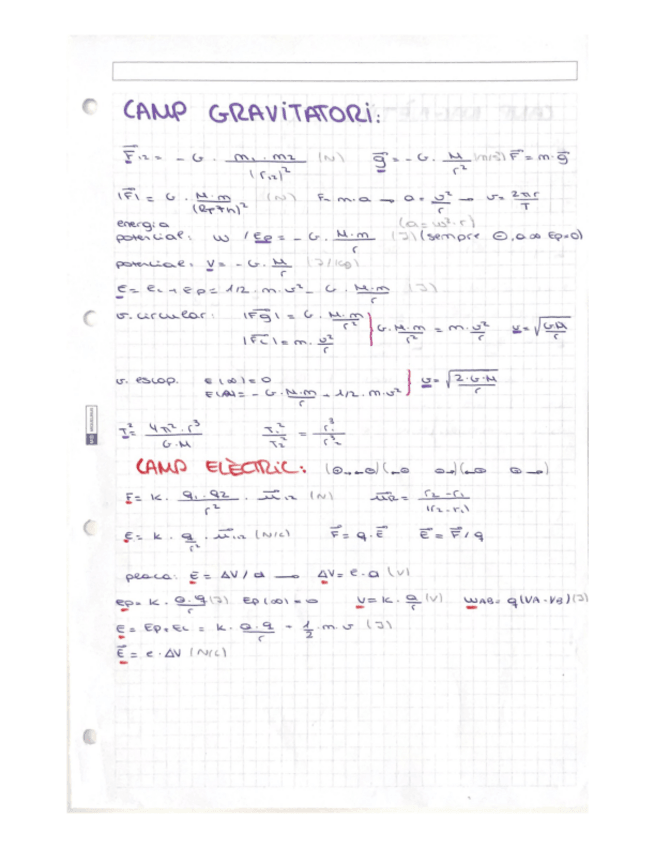 CAMP GRAVITATORI:
F₁₂ = - G · m₁ · m₂ / (r₁₂)² (N) g = - G · M / r² (m/s²) F = m · g
|F| = G · M · m / (RT+h)² (N) F = m · a → a = v² / r → v = 2πr / T
energia (a = ω² · r)
potencial: W / Ep = - G · M · m / r (J) (sempre ⊖, a ∞ Ep=0)
potencial: V = - G · M / r (J/kg)
E = Ec + Ep = 1/2 · m · v² - G · M · m / r (J)
v. circular: |Fg| = G · M · m / r² } G · M · m / r² = m · v² / r v = √(GM / r)
|Fc| = m · v² / r
v. escap. E(∞) = 0 } v = √(2 · G · M / r)
= - G · M · m / r + 1/2 · m · v²
T² = 4π² · r³ / G · M T₁² / T₂² = r₁³ / r₂³
CAMP ELÈCTRIC:
F = K · q₁ · q₂ / r² · u₁₂ (N) = r₂ - r₁ / |r₂ - r₁|
E = K · q / r² · u₁₂ (N/C) F = q · E E = F / q
placa: E = ΔV / d → ΔV = E · d (V)
Ep = K · Q · q / r (J) Ep(∞) = 0 V = K · Q / r (V) WAB = q (VA - VB) (J)
E = Ep + Ec = K · Q · q / r - 1/2 · m · v (J)
E = e · ΔV (N/C)